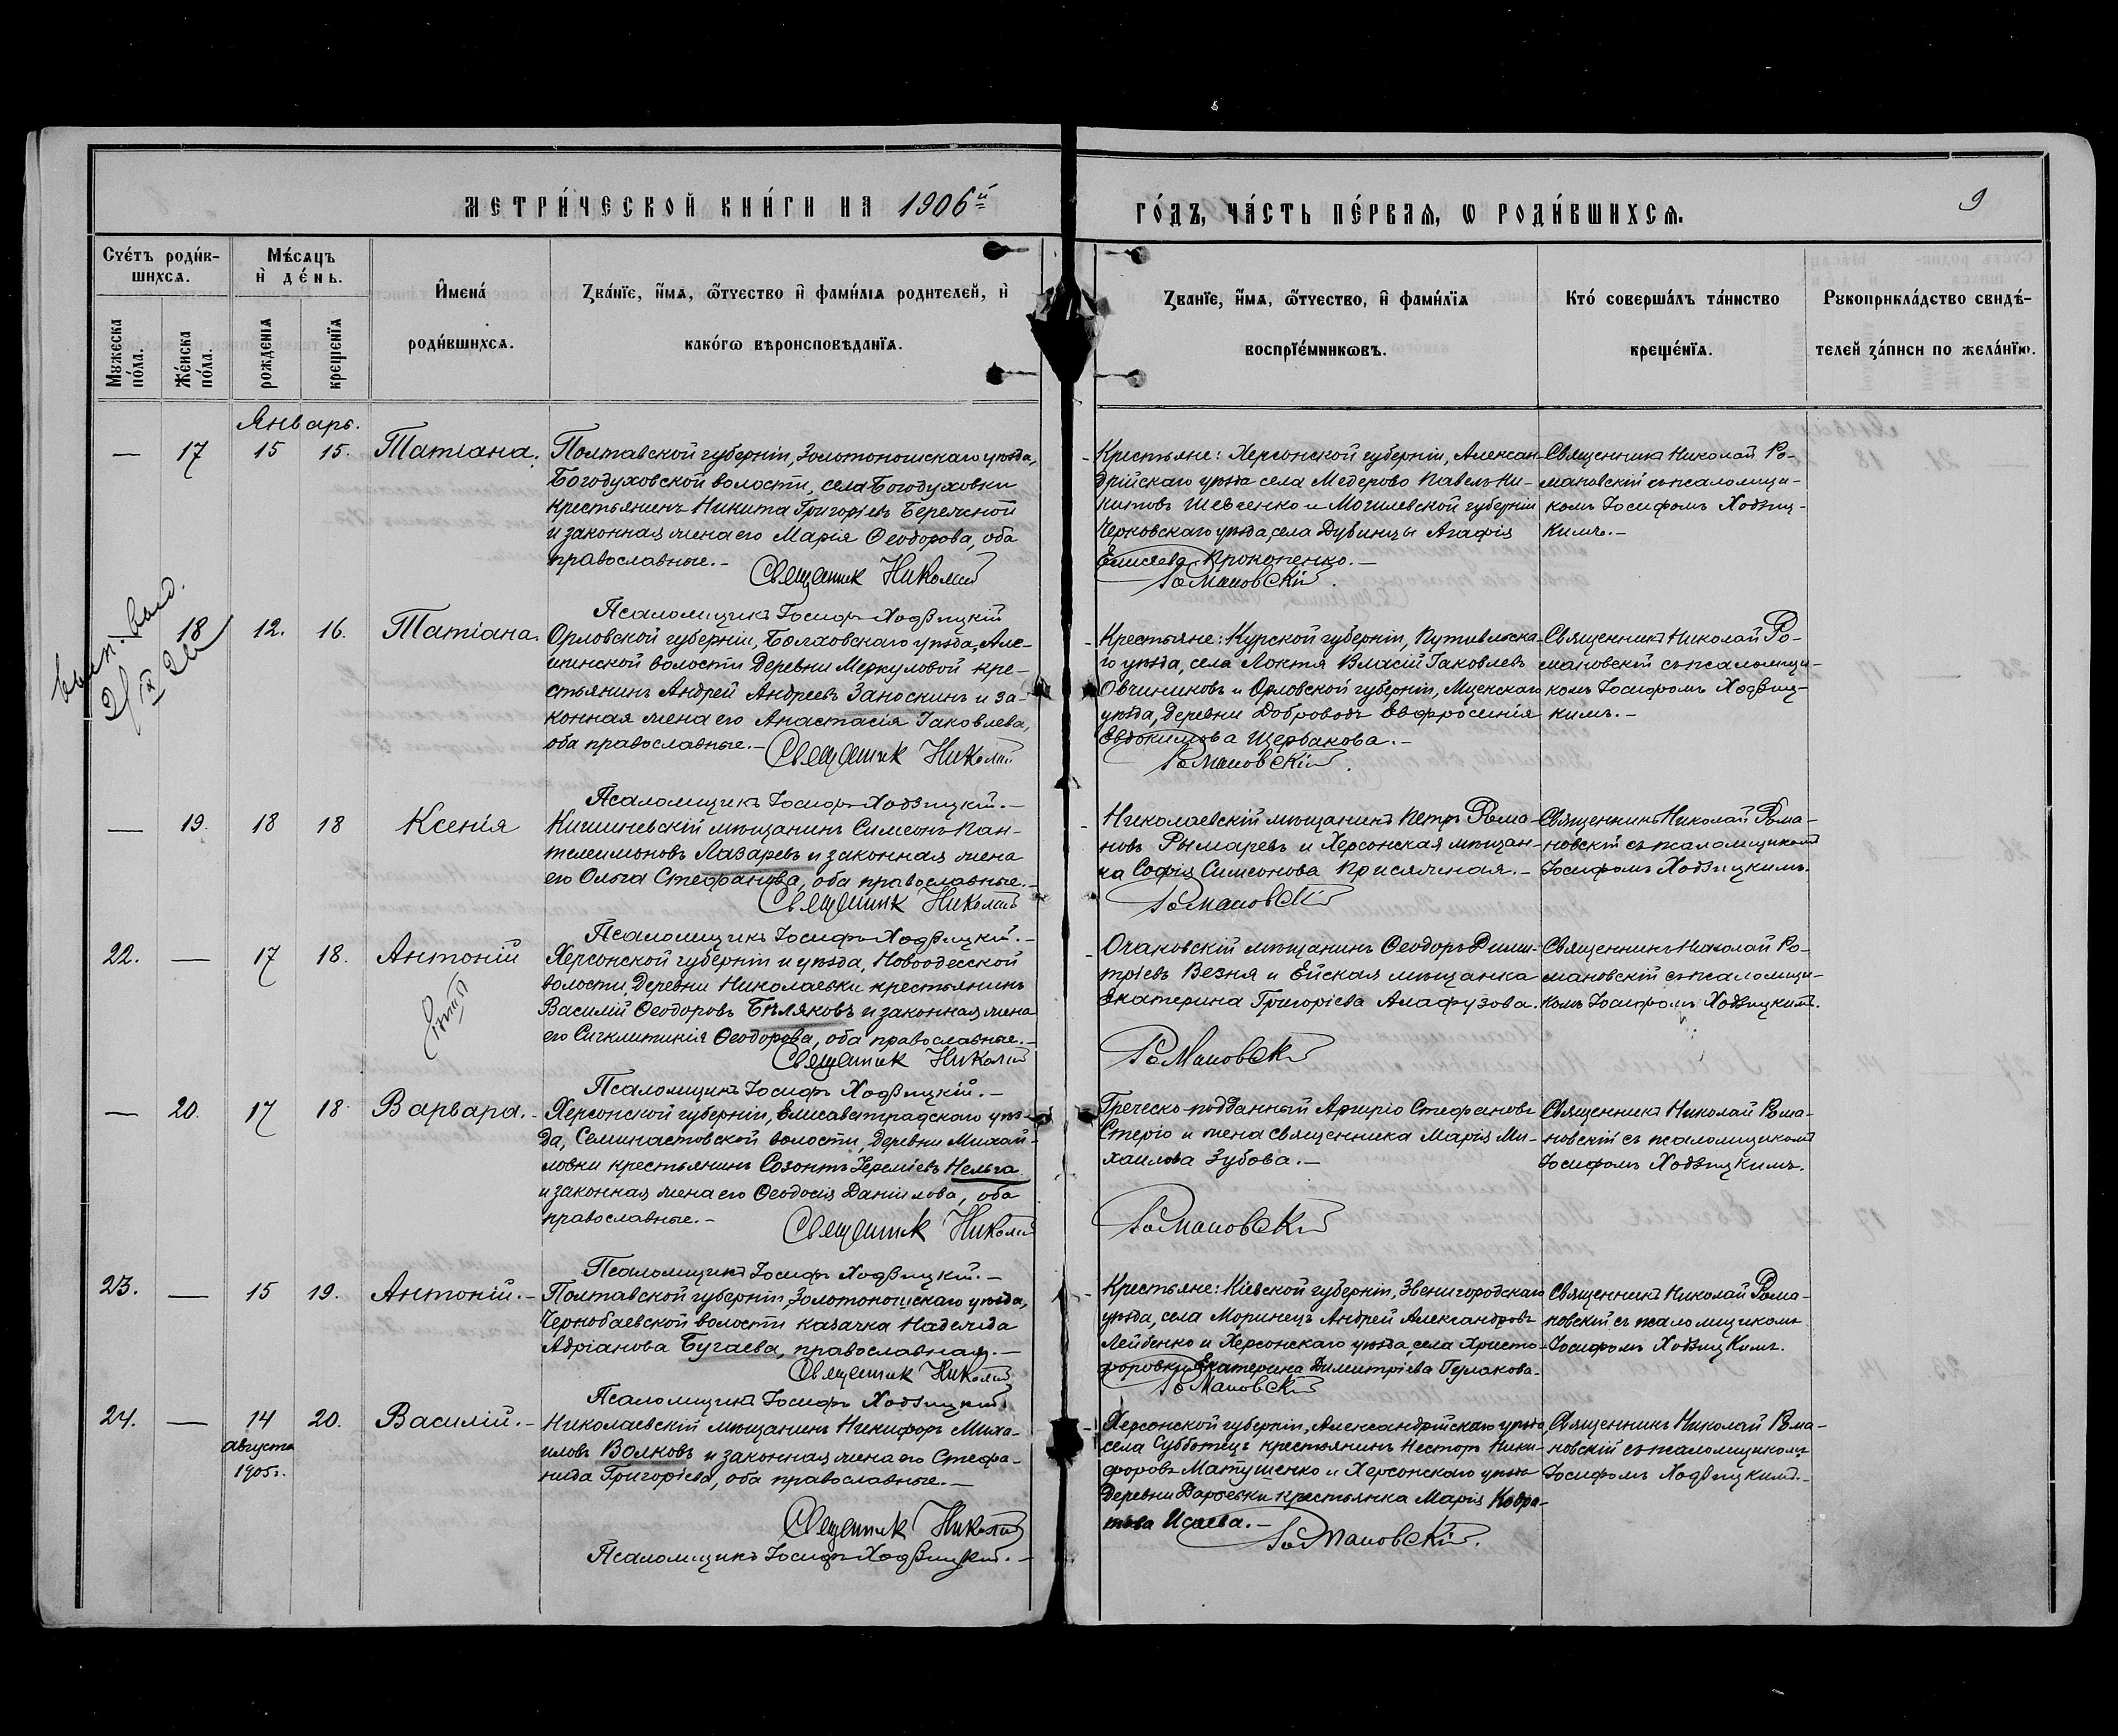 МЕТРИ́ЧЕСКОЙ КНИ́ГИ НА 1906й
ГО́ДЪ, ЧА́СТЬ ПЕ́РВАЯ, Ѡ РОДИ́ВШИХСѦ.
9
Сче́тъ роди́в-
шихсѧ.
Мꙋжеска
по́ла.
Же́нска
по́ла.
Мѣ́сѧцъ
и҆ де́нь.
рожденїѧ
крещенїѧ
И҆мена́
роди́вшихсѧ.
Зва́нїе, и҆́мѧ, ѻ҆́тчество и҆ фамилїѧ родителей, и҆
како́гѡ вѣроисповѣданїѧ.
Званїе, и҆́мѧ, ѻ҆́тчество, и҆ фами́лїѧ
воспрїе́мникѡвъ.
Кто́ соверша́лъ та́инство
креще́нїѧ.
Рꙋкоприкла́дство свидѣ́-
телей за́писи по жела́нїю.
Январь.
— 17 15 15. Татіана.
Полтавской губерніи, Золотоношскаго уѣзда,
Богодуховской волости, села Богодуховки
крестьянинъ Никита Григорьевъ Бережной
и законная жена его Марія Ѳеодорова, оба
православные.-
Священник Николай
Псаломщикъ Іосифъ Ходзицкій
Крестьяне: Херсонской губерніи, Алексан-
дрійскаго уѣзда села Медерово Павелъ Ни-
китовъ Шевченко и Могилевской губерніи
Чериковскаго уѣзда, села Дубинцы Агафія
Елисеева Прокопенко.—
Романовскій.
Священникъ Николай Ро-
мановскій съ псаломщи-
комъ Іосифомъ Ходзиц-
кимъ.—
18 12. 16. Татіана.
Орловской губерніи, Болховскаго уѣзда, Але-
шинской волости деревни Меркуловой кре-
стьянинъ Андрей Андреевъ Заноскинъ и за-
конная жена его Анастасія Іаковлева,
оба православные.—
Священник Николай
Псаломщикъ Іосифъ Ходзицкій.—
Крестьяне: Курской губерніи, Путивльска-
го уѣзда, села Локтя Власій Іаковлевъ
Овчиниковъ и Орловской губерніи, Мценскаго
уѣзда, деревни Доброводъ Евфросинія
Евдокимова Щербакова.—
Романовскій.
Священникъ Николай Ро-
мановскій съ псаломщи-
комъ Іосифомъ Ходзиц-
кимъ.—
— 19. 18 18 Ксенія
Кишиневскій мѣщанинъ Симеонъ Пан-
телеимоновъ Лазаревъ и законная жена
его Ольга Стефанова, оба православные.-
Священник Николай
Псаломщикъ Іосифъ Ходзицкій.—
Николаевскій мѣщанинъ Петръ Рома-
новъ Рымаревъ и Херсонская мѣщан-
ка Софія Симеонова Присяжная.—
Романовскій
Священникъ Николай Рома-
новскій съ псаломщикомъ
Іосифомъ Ходзицкимъ.
22. — 17 18. Антоній
Херсонской губерніи и уѣзда, Новоодесской
волости, деревни Николаевки крестьянинъ
Василій Ѳеодоровъ Бѣляковъ и законная жена
его Сигклитикія Ѳеодорова, оба православные.-
Священник Николай
Псаломщикъ Іосифъ Ходзицкій.—
Очаковскій мѣщанинъ Ѳеодоръ Дими-
тріевъ Везня и Ейская мѣщанка
Екатерина Григоріева Алафузова.
Романовскій
Священникъ Николай Ро-
мановскій съ псаломщи-
комъ Іосифомъ Ходзицкимъ.
— 20. 17 18. Варвара.-
Херсонской губерніи, Елисаветградскаго уѣз-
да, Семинастовской волости, деревни Михай-
ловки крестьянинъ Созонтъ Іереміевъ Нельга
и законная жена его Ѳеодосія Даніилова, оба
православные.-
Священник Николай
Псаломщикъ Іосифъ Ходзицкій.—
Греческо-подданный Аргиріо Стефановъ
Стеріо и жена священника Марія Ми-
хаилова Зубова.—
Романовскій
Священникъ Николай Рома-
новскій съ псаломщикомъ
Іосифомъ Ходзицкимъ.
23. — 15 19. Антоній.-
Полтавской губерніи, Золотоношскаго уѣзда,
Чернобаевской волости казачка Надежда
Адріанова Бугаева, православная.—
Священник Николай
Псаломщикъ Іосифъ Ходзицкій
Крестьяне: Кіевской губерніи, Звенигородскаго
уѣзда, села Моринецъ Андрей Александровъ
Лейбенко и Херсонскаго уѣзда, села Христо-
форовки Екатерина Димитріева Гулакова.
Романовскій
Священникъ Николай Рома-
новскій съ псаломщикомъ
Іосифомъ Ходзицкимъ.
24. — 14 20. Василій.-
августа
1905г.
Николаевскій мѣщанинъ Никифоръ Миха-
иловъ Волковъ и законная жена его Стефа-
нида Григоріева, оба православные.—
Священник Николай
Псаломщикъ Іосифъ Ходзицкій.—
Херсонской губерніи, Александрійскаго уѣзда,
села Субботецъ крестьянинъ Несторъ Ники-
форовъ Матушенко и Херсонскаго уѣзда
деревни Дарьевки крестьянка Марія Кодра-
това Исаева.—
Романовскій.
Священникъ Николай Рома-
новскій съ псаломщикомъ
Іосифомъ Ходзицкимъ.-